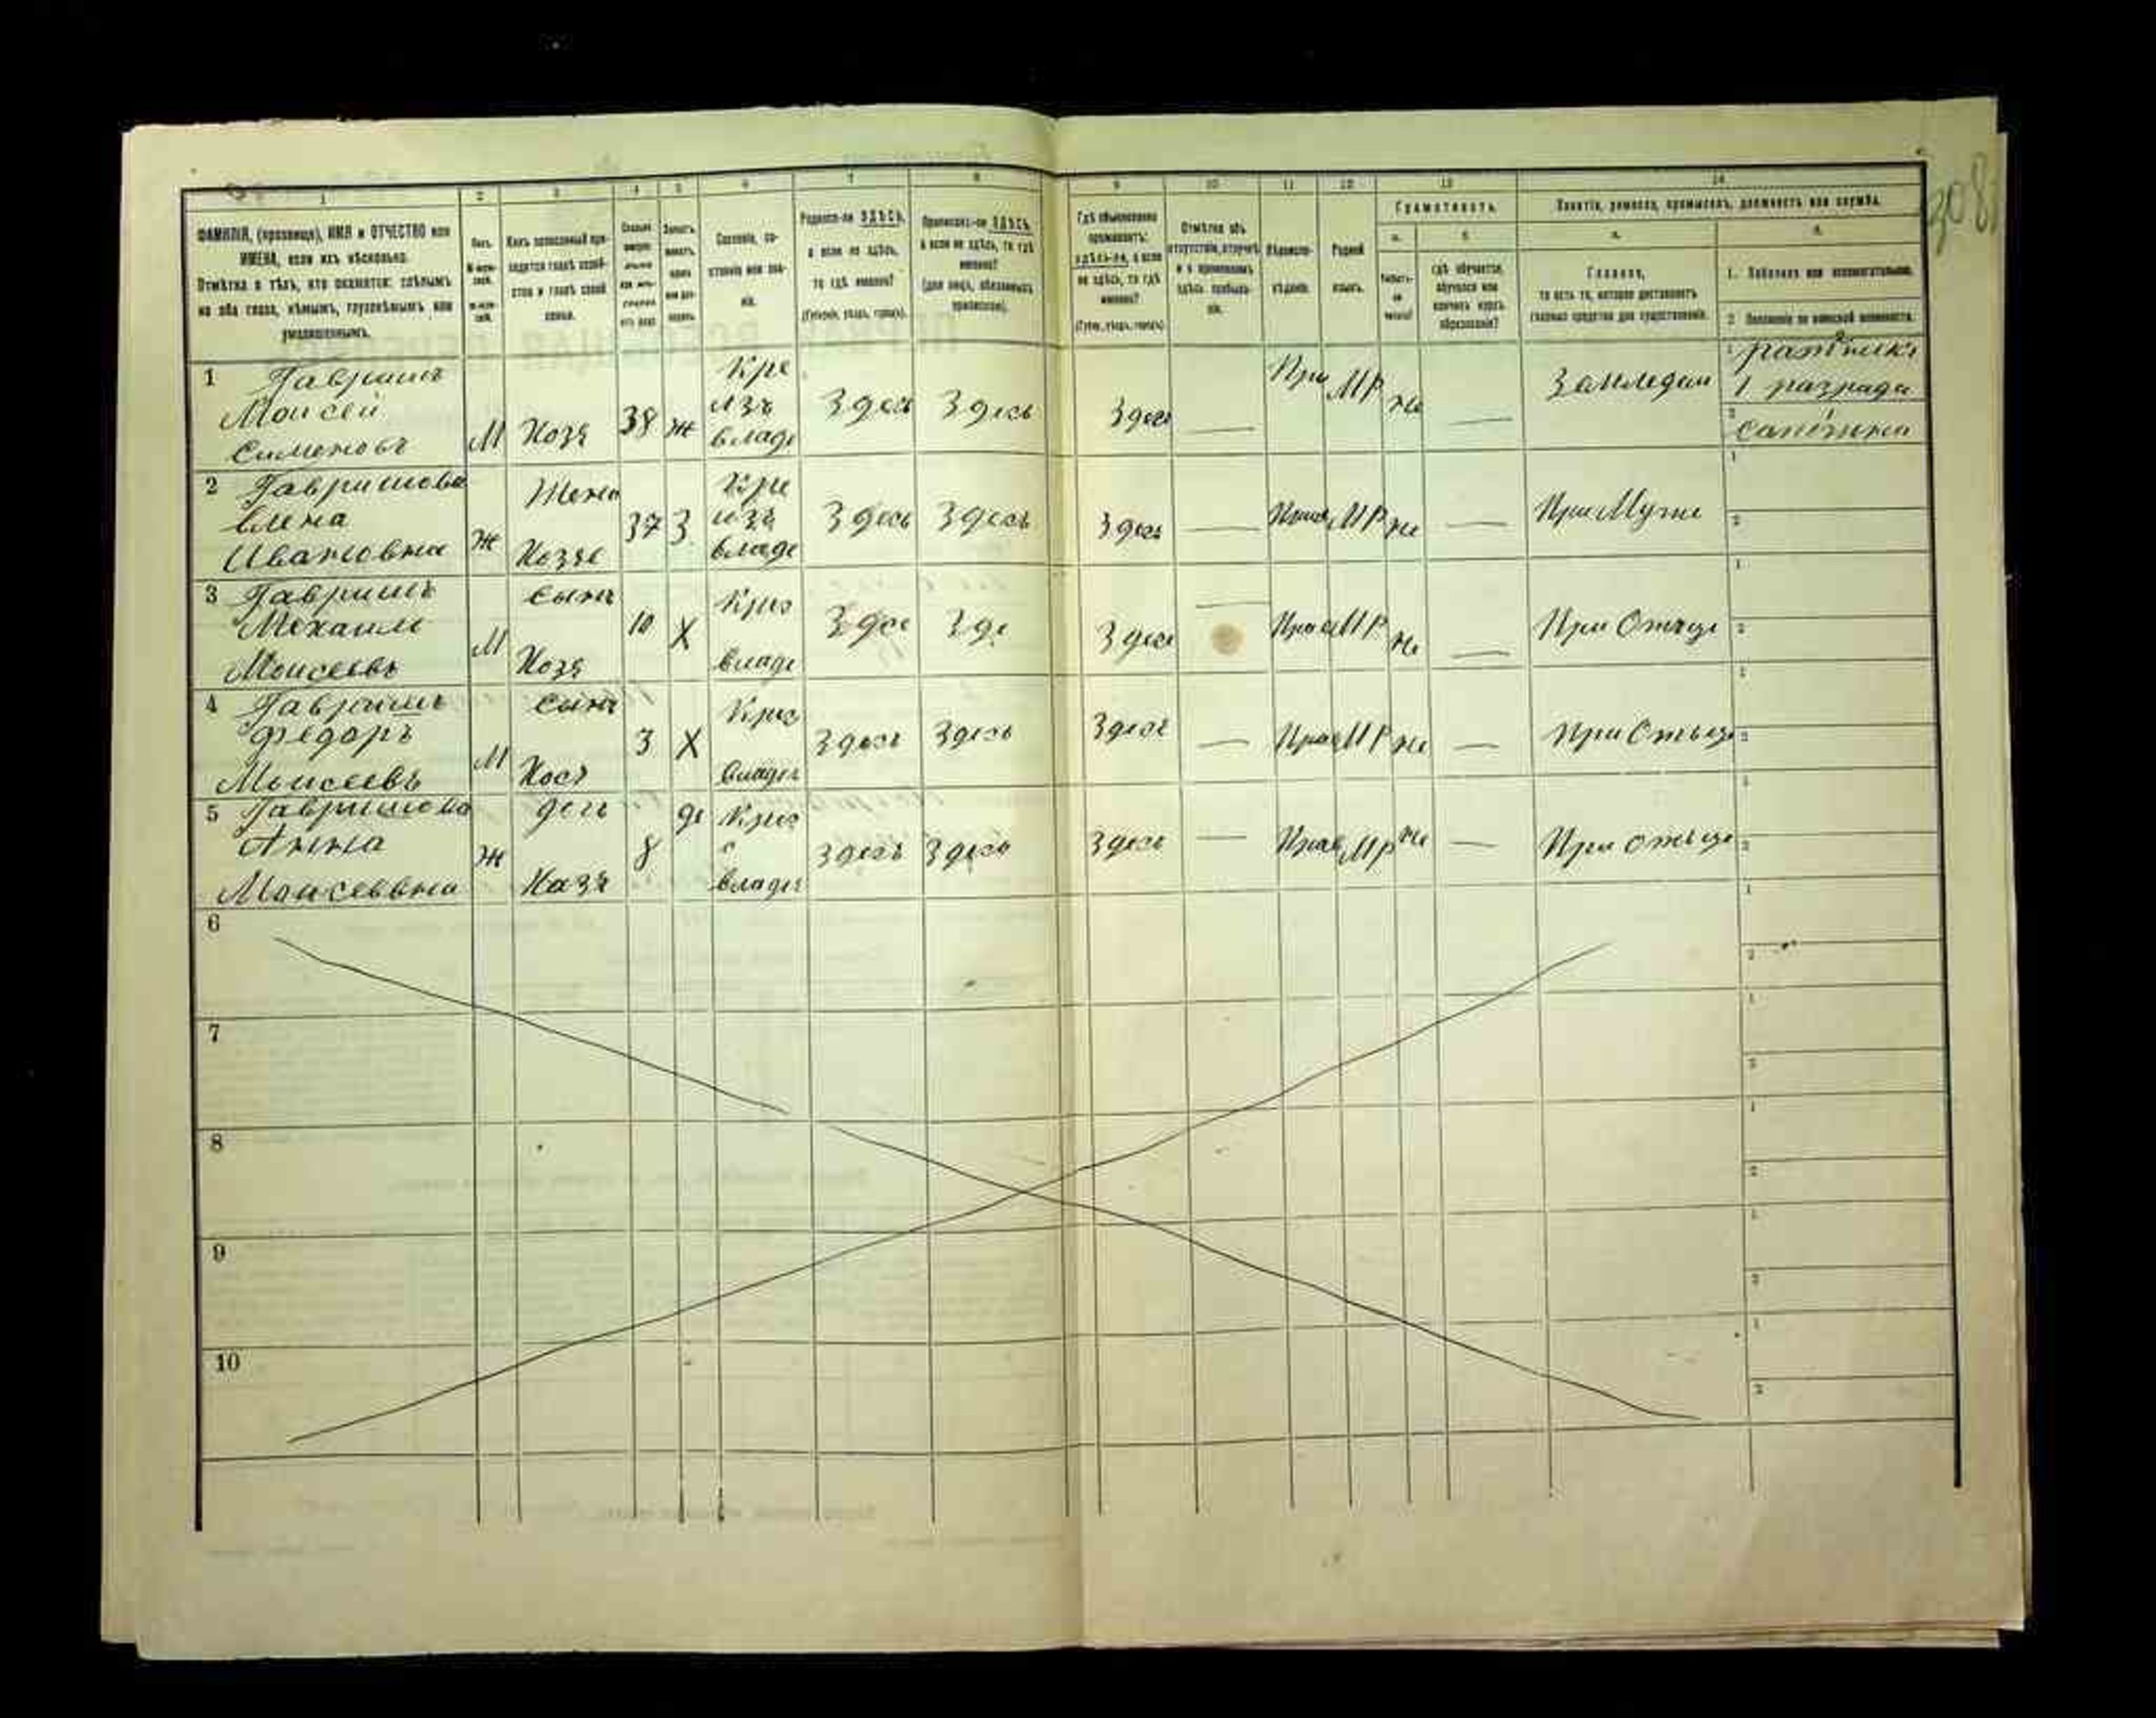 308
1 2 3 4 5 6 7 8 9 10 11 12 13 14
ФАМИЛІЯ, (прозвище), ИМЯ и ОТЧЕСТВО или
ИМЕНА, если ихъ нѣсколько.
Отмѣтка о тѣхъ, кто окажется: слѣпымъ
на оба глаза, нѣмымъ, глухонѣмымъ или
умалишеннымъ.
Полъ.
Какъ записанный при-
ходится главѣ хозяй-
ства и главѣ своей
семьи.
Сословіе, со-
стояніе или зва-
ніе.
Родился-ли ЗДѢСЬ,
а если не здѣсь,
то гдѣ именно?
(Губернія, уѣздъ, городъ).
Приписанъ-ли ЗДѢСЬ,
а если не здѣсь, то гдѣ
именно?
(для лицъ, обязанныхъ
припискою).
Гдѣ обыкновенно
проживаетъ:
здѣсь-ли, а если
не здѣсь, то гдѣ
именно?
(Губ., уѣздъ, городъ).
Отмѣтка объ
отсутствіи, отлучкѣ
и о временномъ
здѣсь пребыва-
ніи.
Вѣроиспо-
вѣданіе.
Родной
языкъ.
Грамотность.
а. б.
Умѣетъ-
ли
читать?
Гдѣ обучается,
обучался или
кончилъ курсъ
образованія?
Занятіе, ремесло, промыселъ, должность или служба.
а. б.
Главное,
то есть то, которое доставляетъ
главныя средства для существованія.
1. Побочное или вспомогательное.
2. Положеніе по воинской повинности.
1 Гавришъ
Моисей
Сименовъ
М Хозя 38 ж Кре
изъ
владе
Здесь Здесь Здесь — Пра МР не —
1 ратникъ
1 разряда
2
2 Гавришова
Елена
Ивановна
Ж Жена
Хозяе
37 З Кре
изъ
владе
Здесь Здесь Здесь — Прав МР не — При Муже
1
2
3 Гавришъ
Михаилъ
Моисеевъ
М Сынъ
Хозя
10 Х Крес
владе
Здес Зде Здес — Прав МР не — При Отъце
1
2
4 Гавришъ
Федоръ
Моисеевъ
М Сынъ
Хозя
3 Х Крес
владе
Здесь Здесь Здесь — Прав МР не — При Отьце
1
2
5 Гавришова
Анна
Моисеевна
Ж дочь
Хазя
8 де Крес
с
владе
Здесь Здесь Здесь — Прав МР не — При отьце
1
2
6
1
2
7
1
2
8
1
2
9
1
2
10
1
2